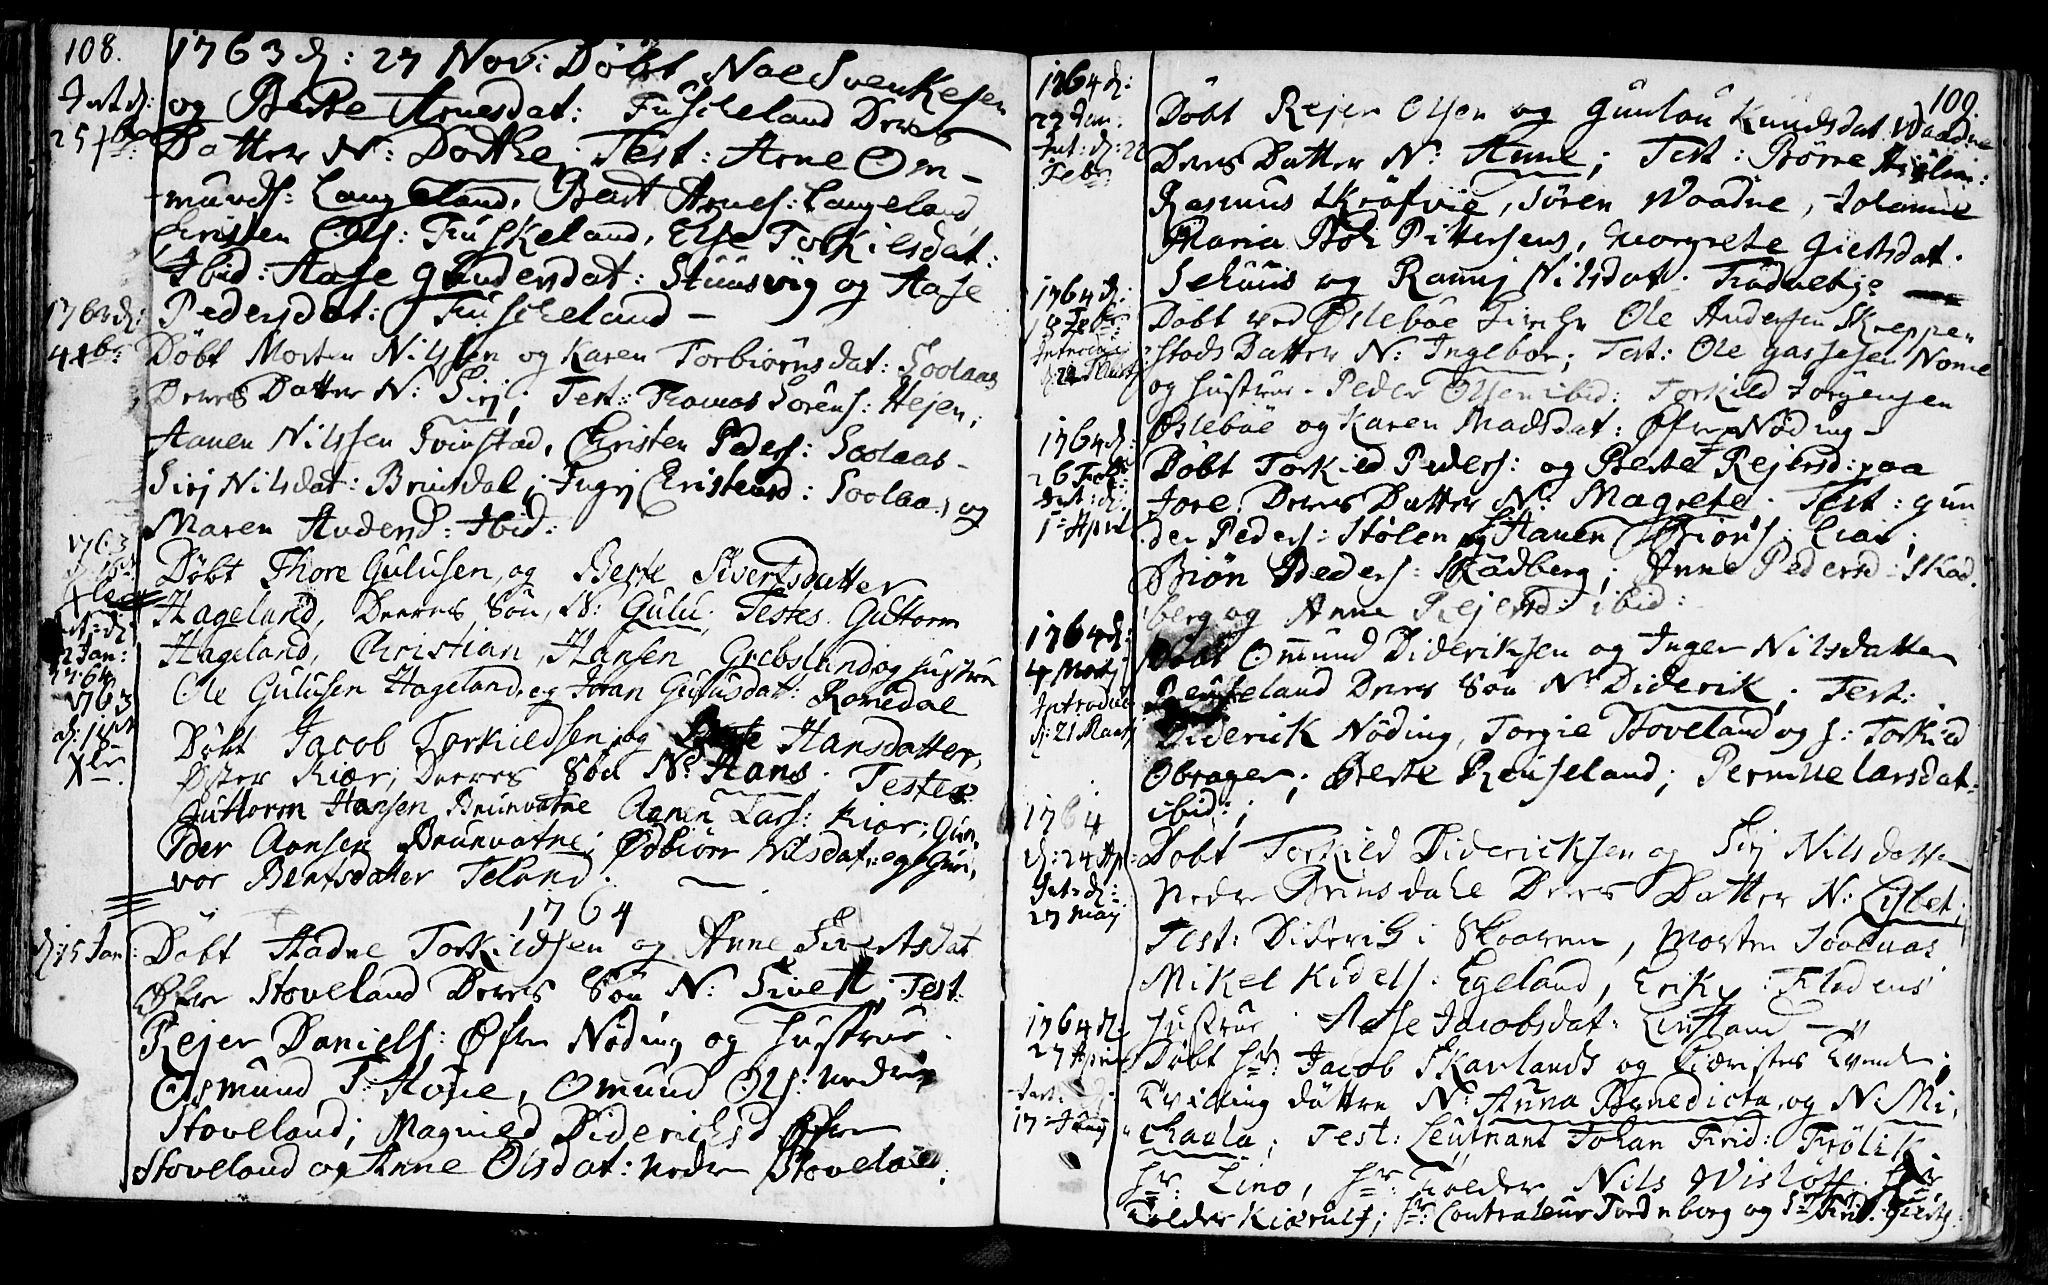 108.
1763 d: 27 Nov: Döbt Noe Svenkesen
Int d:
og Berte Arnesdat: Fuskeland Deres
Datter N: Dorthe; Test: Arne Om-
munds: Langeland, Bert Arnes: Langeland,
Christen Ols: Fuskeland, Else Torkilsdat:
Ibid: Aase Gundersdat: Stuusvig og Aase
Pedersdat: Fuskeland -
1763 d:
4 Xbr
Döbt Morten Nilssen og Karen Torbiörnsdat: Soolaas
Deres Datter N: Sirj; Test: Thomas Sorens: Hejen;
Aanen Nilssen Svinstad, Christen Peders: Soolaas-
Sirj Nilsdat: Brinsdal; Ingrj Christensd: Soolaa, og
Maren Andersd: Ibid:
1763
Döbt Thore Gulusen, og Berte Sivertsdatter
Hageland, Deeres Sön, N: Gulu. Testes. Guttorm
Int: d:
22 Jan:
1764
Hageland, Christian Hansen Grebsland og hustrue
Ole Gulusen Hageland, og Joran Gulusdat: Romedal
1763
Xbr
Döbt Jacob Torkieldsen og Berte Hansdatter,
Öster Kiær; Deeres Sön N: Hans. Testes
Guttorm Hansen Brunvatne Aanen Lars: Kiær; Gun-
der Aansen Brunvatne; Ødbiör Nilsdat: og Guri,
vor Bentsdatter Teland.
1764
d: 15 Jan:
Döbt Aadne Torkildsen og Anne Sivertsdat
Öfre Stoveland Deres Sön N: Sivert; Test:
Rejer Daniels: Öfre Nöding og hustrue.
Osmund T: Höje, Omund Ols: nedre
Stoveland; Magnild Didericksd Öfre
Stoveland og Anne Olsdat: nedre Stoveland.
109.
1764 d:
22 Jan:
Int: d: 26
Febr
Döbt Rejer Olsen og Gunlau Knudsdat: Waadne
Deres Datter N: Anne; Test: Börre
Rasmus Kröfvie, Sören Waadne, Johanne
Maria Pittersens, Margrete Giertsdat.
Sehuus og Rannj Nilsdat. Frödnebye
1764 d:
18 Febr:
Introduc:
Döbt ved Ösleböe Kirche Ole Andersen Skreppen
stads Datter N: Ingebor; Test: Ole Gassesen Nome
og hustrue - Peder Olsen ibid: Torkild Jörgensen
Ösleböe og Karen Madsdat: Öfre Nöding -
1764 d:
26 Febr:
Int: d:
1 April
Döbt Torkied Peders: og Berte Rejersd: paa
Fore, Deres Datter N: Magrete. Test: Gun
der Peders: Stölen og Aanen Biörs: Liar;
Biön Peders: Skadberg; Anne Pedersd: Skad.
berg og Anne Rejersd: ibid:
1764 d:
4 Martj
Introduc
d: 21 Martj
Döbt Omund Dideriksen og Inger Nilsdatter
Reuseland Deres Sön N: Diderik; Test:
Diderik Nöding, Torgie Stoveland og S: Torkild
Obrager; Berte Reuseland; Pernille Larsdat:
ibid:;
1764
d: 24 Apr:
Int: d:
27 May
Döbt Torkild Didericksen og Sirj Nilsdatter
Nedre Brinsdahl Deres Datter N: Lisbet;
Test: Diderik i Skaaren, Morten Soolaas
Mikel Kidels: Egeland, Erik Fladens
hustrue; Aase Jacobsdat: Linfland - "
1764 d:
27 April
17 Junj
Döbt Hr: Jacob Skarlands og Kiæristes Tvende;
Tvilling döttre N: Anna Benedicta, og N: Mi,
chaela; Test: Leutnant Johan Frid: Frölik.
Hr: Lino, Hr: Tolder Nils Wislöff. Hr:
Tolder Kiærulf; Hr: Contraleur Tordenborg og